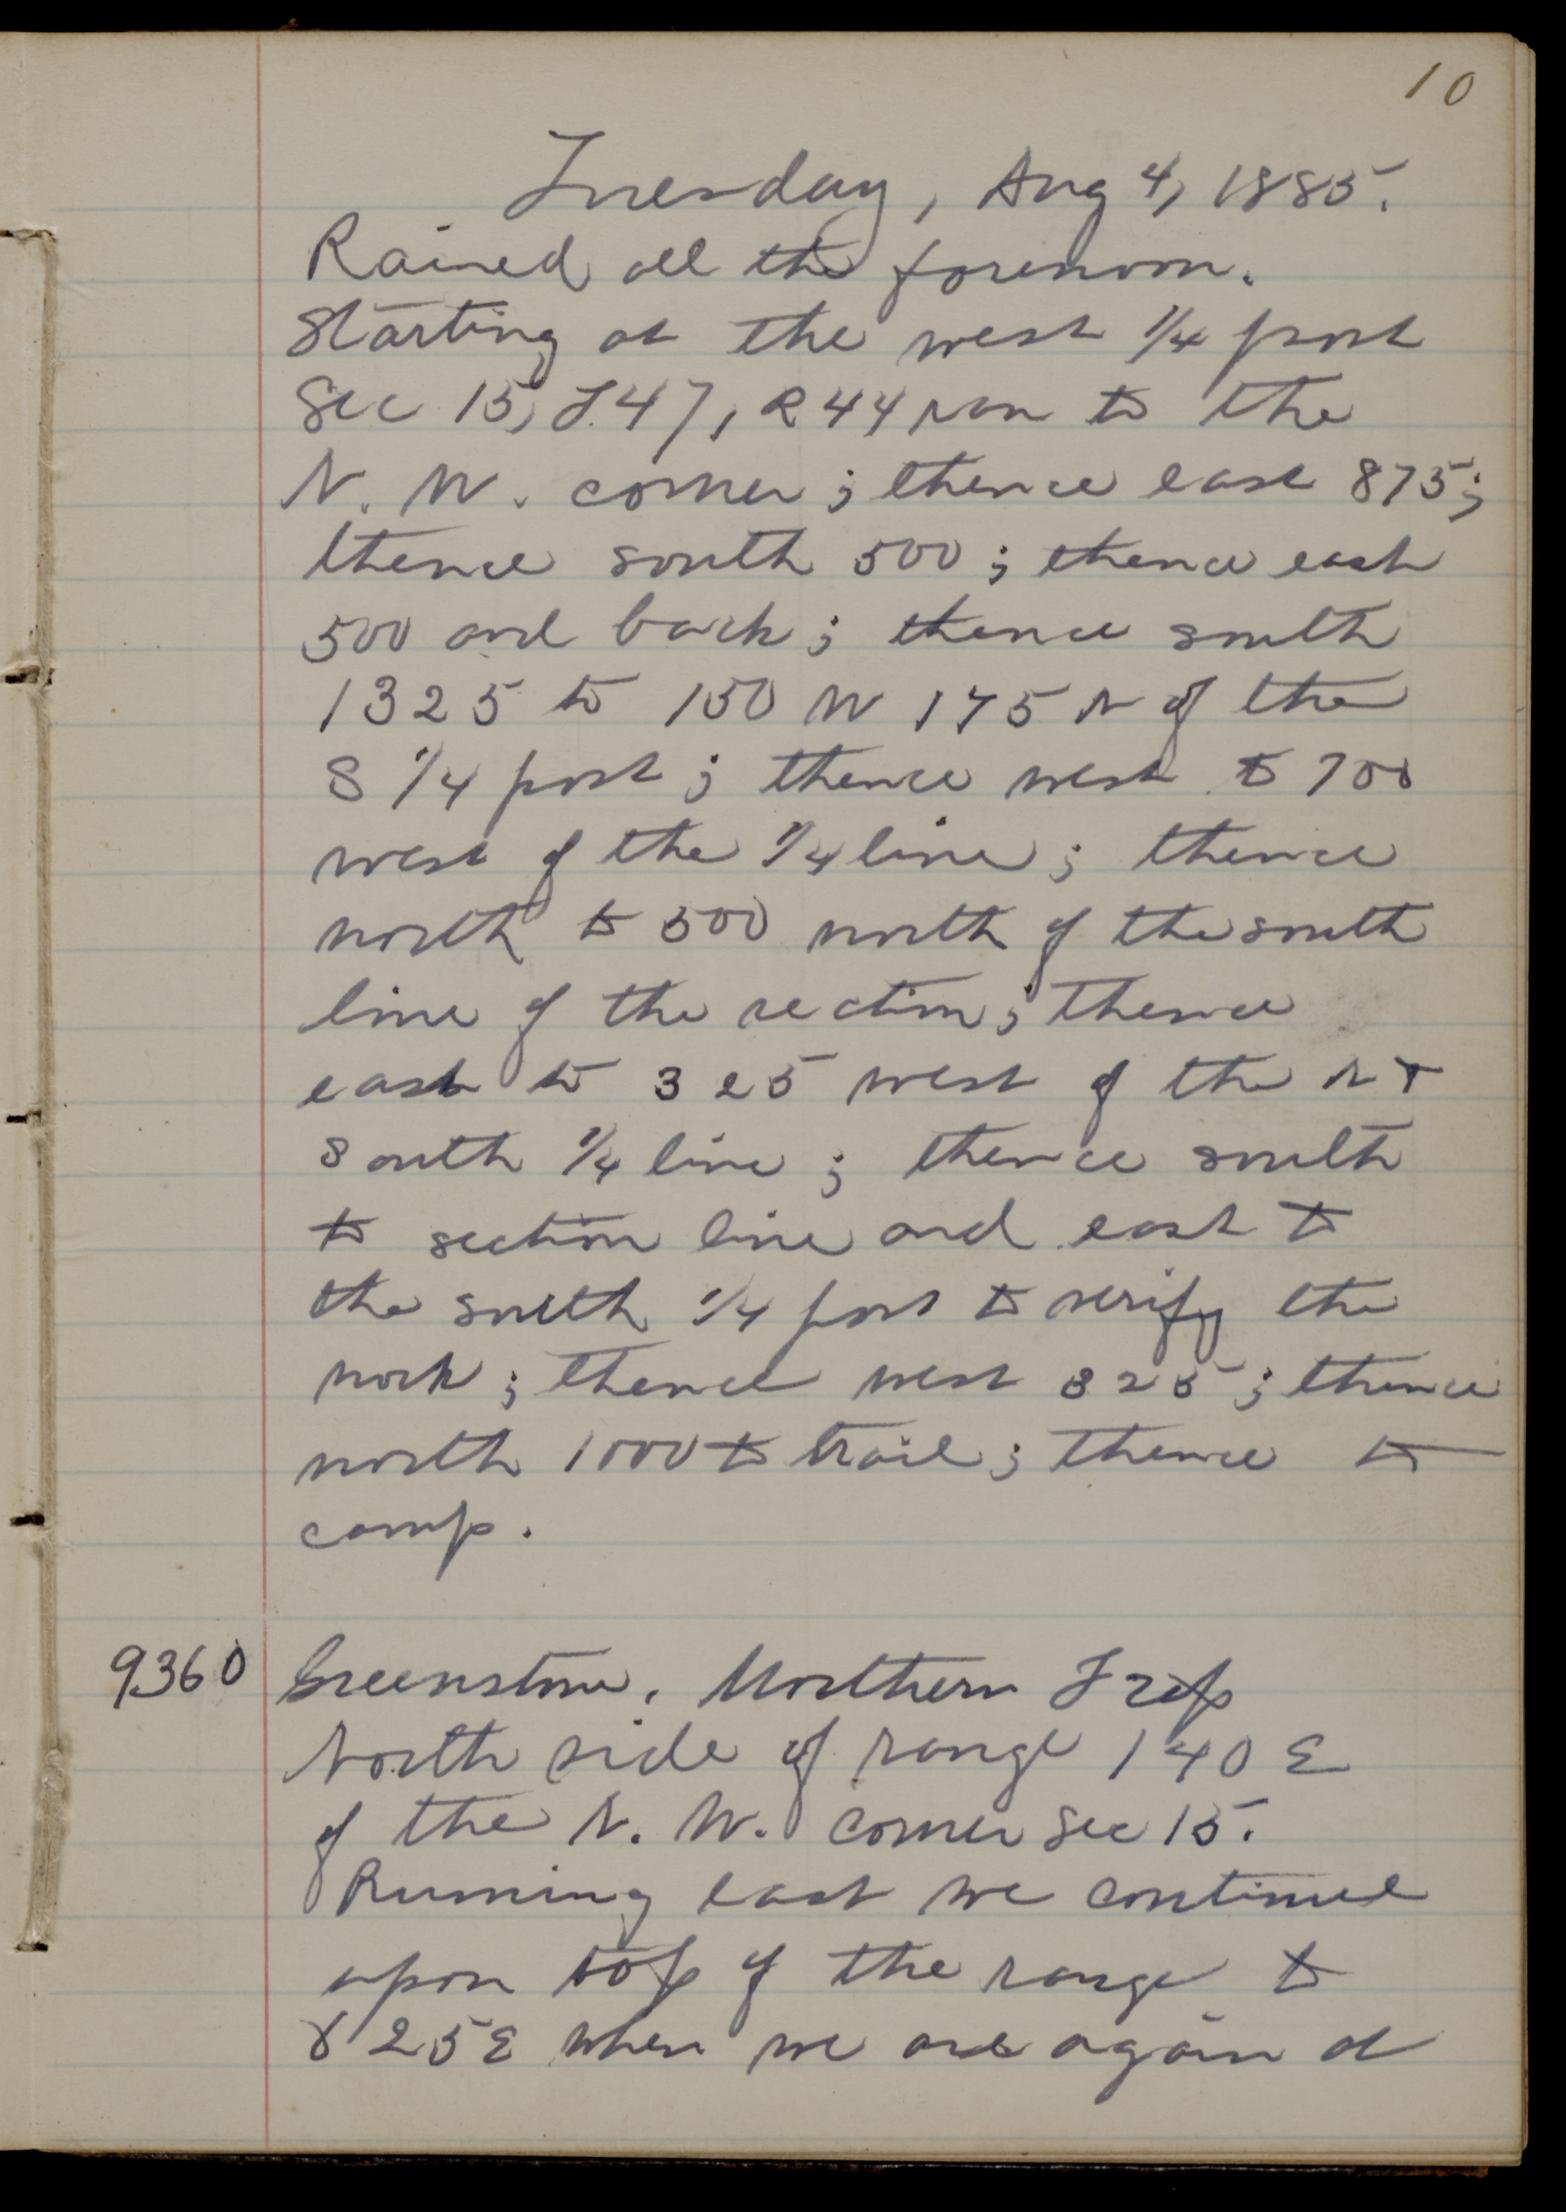 10
Tuesday, Aug 4, 1885.
Rained all the forenoon.
Starting at the west 1/4 post
Sec 15, T.47, R44 ran to the
N. W. corner; thence east 875;
thence south 500; thence east
500 and back; thence south
1325 to 150 W 175 N of the
S 1/4 post; thence west to 700
west of the 1/4 line; thence
north to 500 north of the south
line of the section; thence
east to 325 west of the N &
South 1/4 line; thence south
to section line and east to
the south 1/4 post to verify the
work; thence west 325; thence
north 1000 to trail; thence to
camp.
9360 Greenstone. Northern Trap
North side of range 140 E
of the N. W. corner Sec 15.
Running east we continue
upon top of the range to
825 E when we are again at